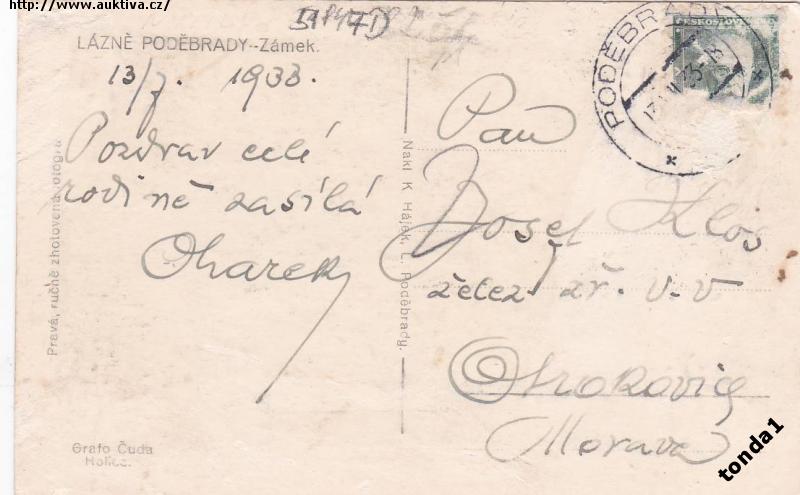 http://www.auktiva.cz/
LÁZNĚ PODĚBRADY--Zámek.
13/7. 1933.
Pozdrav celé
rodině zasílá
Oharek
Pravá, ručně zhotovená fotogra
Grafo Čuda
Holice.
Nakl. K. Hájek, L. Poděbrady.
PODĚBRADY
ČESKOSLOV
Pan
Josef Klos
želez zř. v.v.
Otrokovice
Morava
tonda1